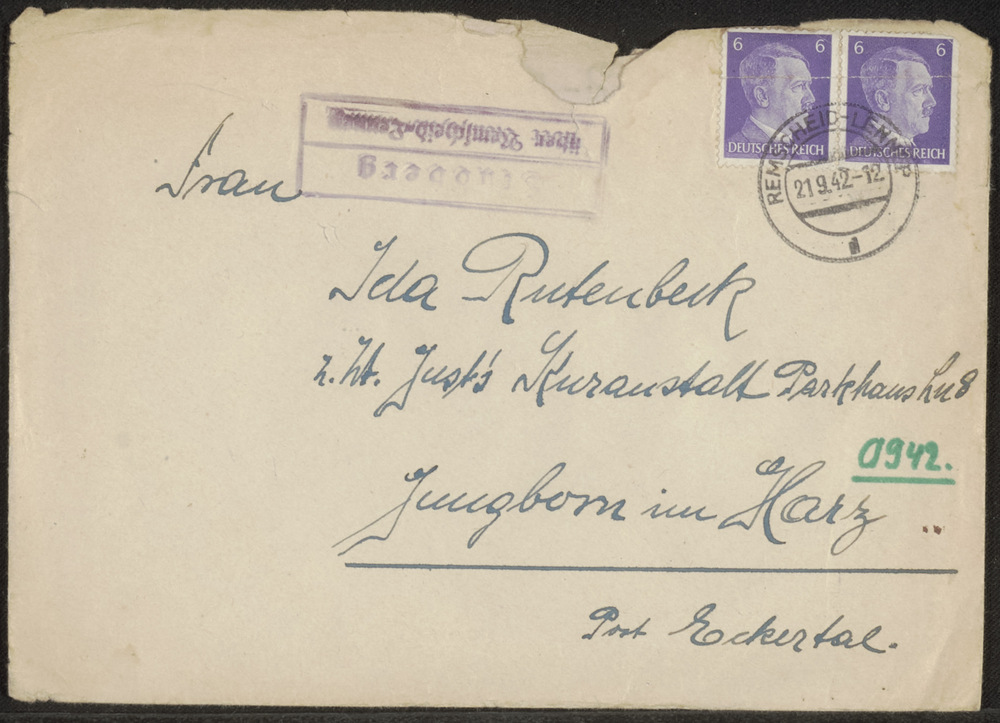 6 6 6 6
DEUTSCHES REICH DEUTSCHES REICH
REMSCHEID-LENNEP
21.9.42-12
a
über Remscheid-Lennep
Frau
Ida Rutenbeck
z. Zt. Just's Kuranstalt Parkhaus
0942.
Jungborn im Harz
Post Eckertal.